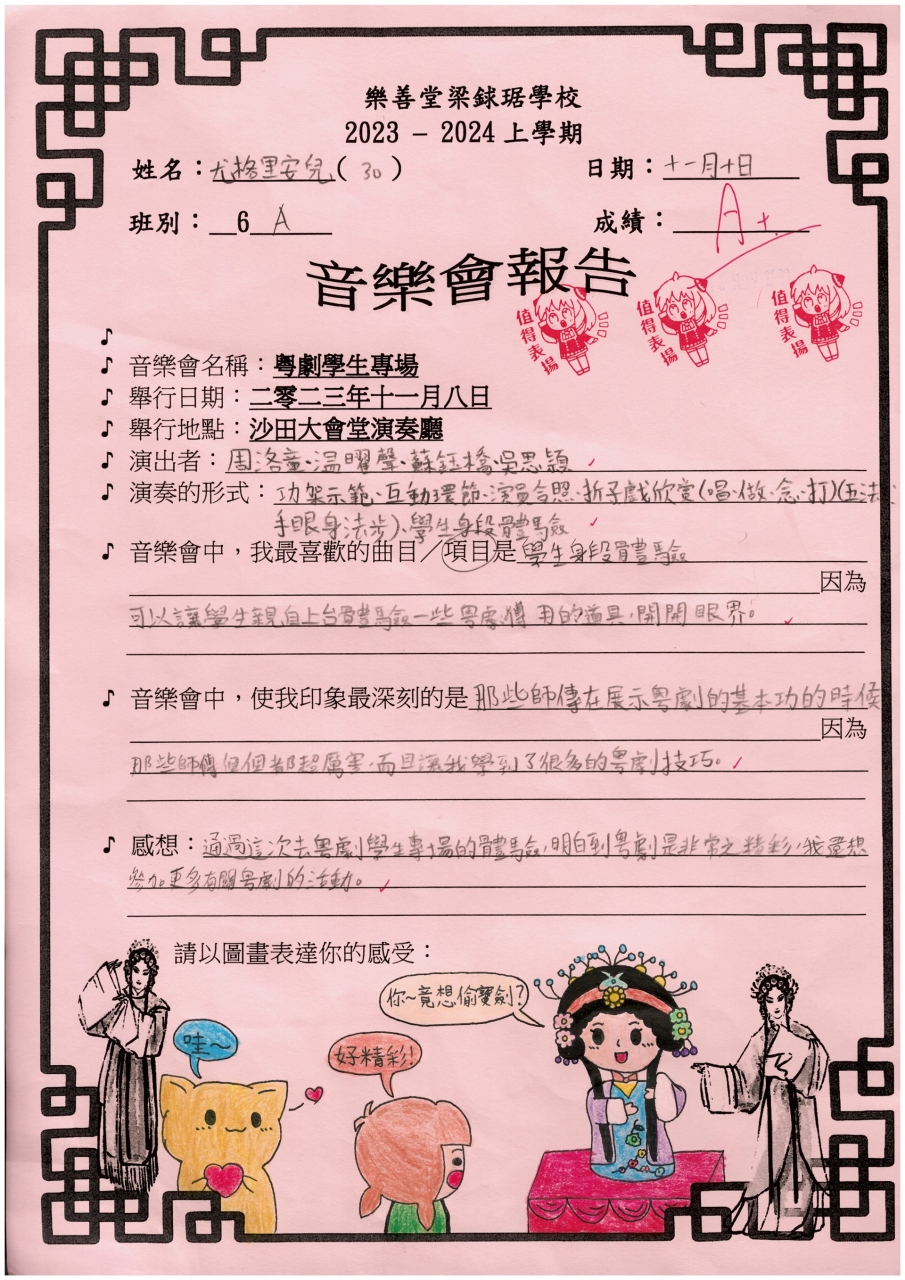 樂善堂梁銶琚學校
2023 - 2024 上學期
姓名：尤格里安兒(30) 日期：十一月十日
班別：6 A 成績：A+
音樂會報告
值得表揚 值得表揚 值得表揚
♪
♪ 音樂會名稱：粵劇學生專場
♪ 舉行日期：二零二三年十一月八日
♪ 舉行地點：沙田大會堂演奏廳
♪ 演出者：周洛童、溫曜聲、蘇鈺橋、吳思穎
♪ 演奏的形式：功架示範、互動環節、演員合照、折子戲欣賞(唱、做、念、打)(五法：
手眼身法步)、學生身段體驗
♪ 音樂會中，我最喜歡的曲目／項目是學生身段體驗
因為
可以讓學生親自上台體驗一些粵劇獲用的道具，開開眼界。
♪ 音樂會中，使我印象最深刻的是那些師傅在展示粵劇的基本功的時候
因為
那些師傅個個都超厲害，而且讓我學到了很多的粵劇技巧。
♪ 感想：通過這次去粵劇學生專場的體驗，明白到粵劇是非常之精彩，我還想
參加更多有關粵劇的活動。
請以圖畫表達你的感受：
你~竟想偷寶劍？
哇~
好精彩！